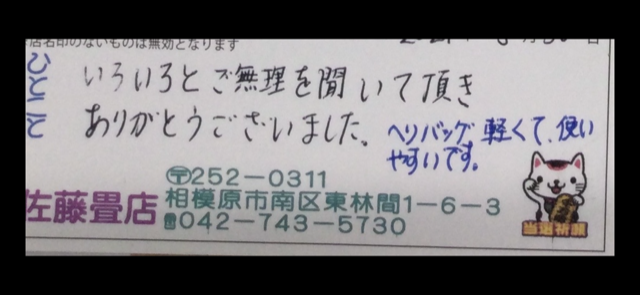 店名印のないものは無効となります
ひとこと
いろいろとご無理を聞いて頂き
ありがとうございました。
ヘリバッグ 軽くて、使い
やすいです。
佐藤畳店
〒252-0311
相模原市南区東林間1-6-3
☎042-743-5730
当選祈願